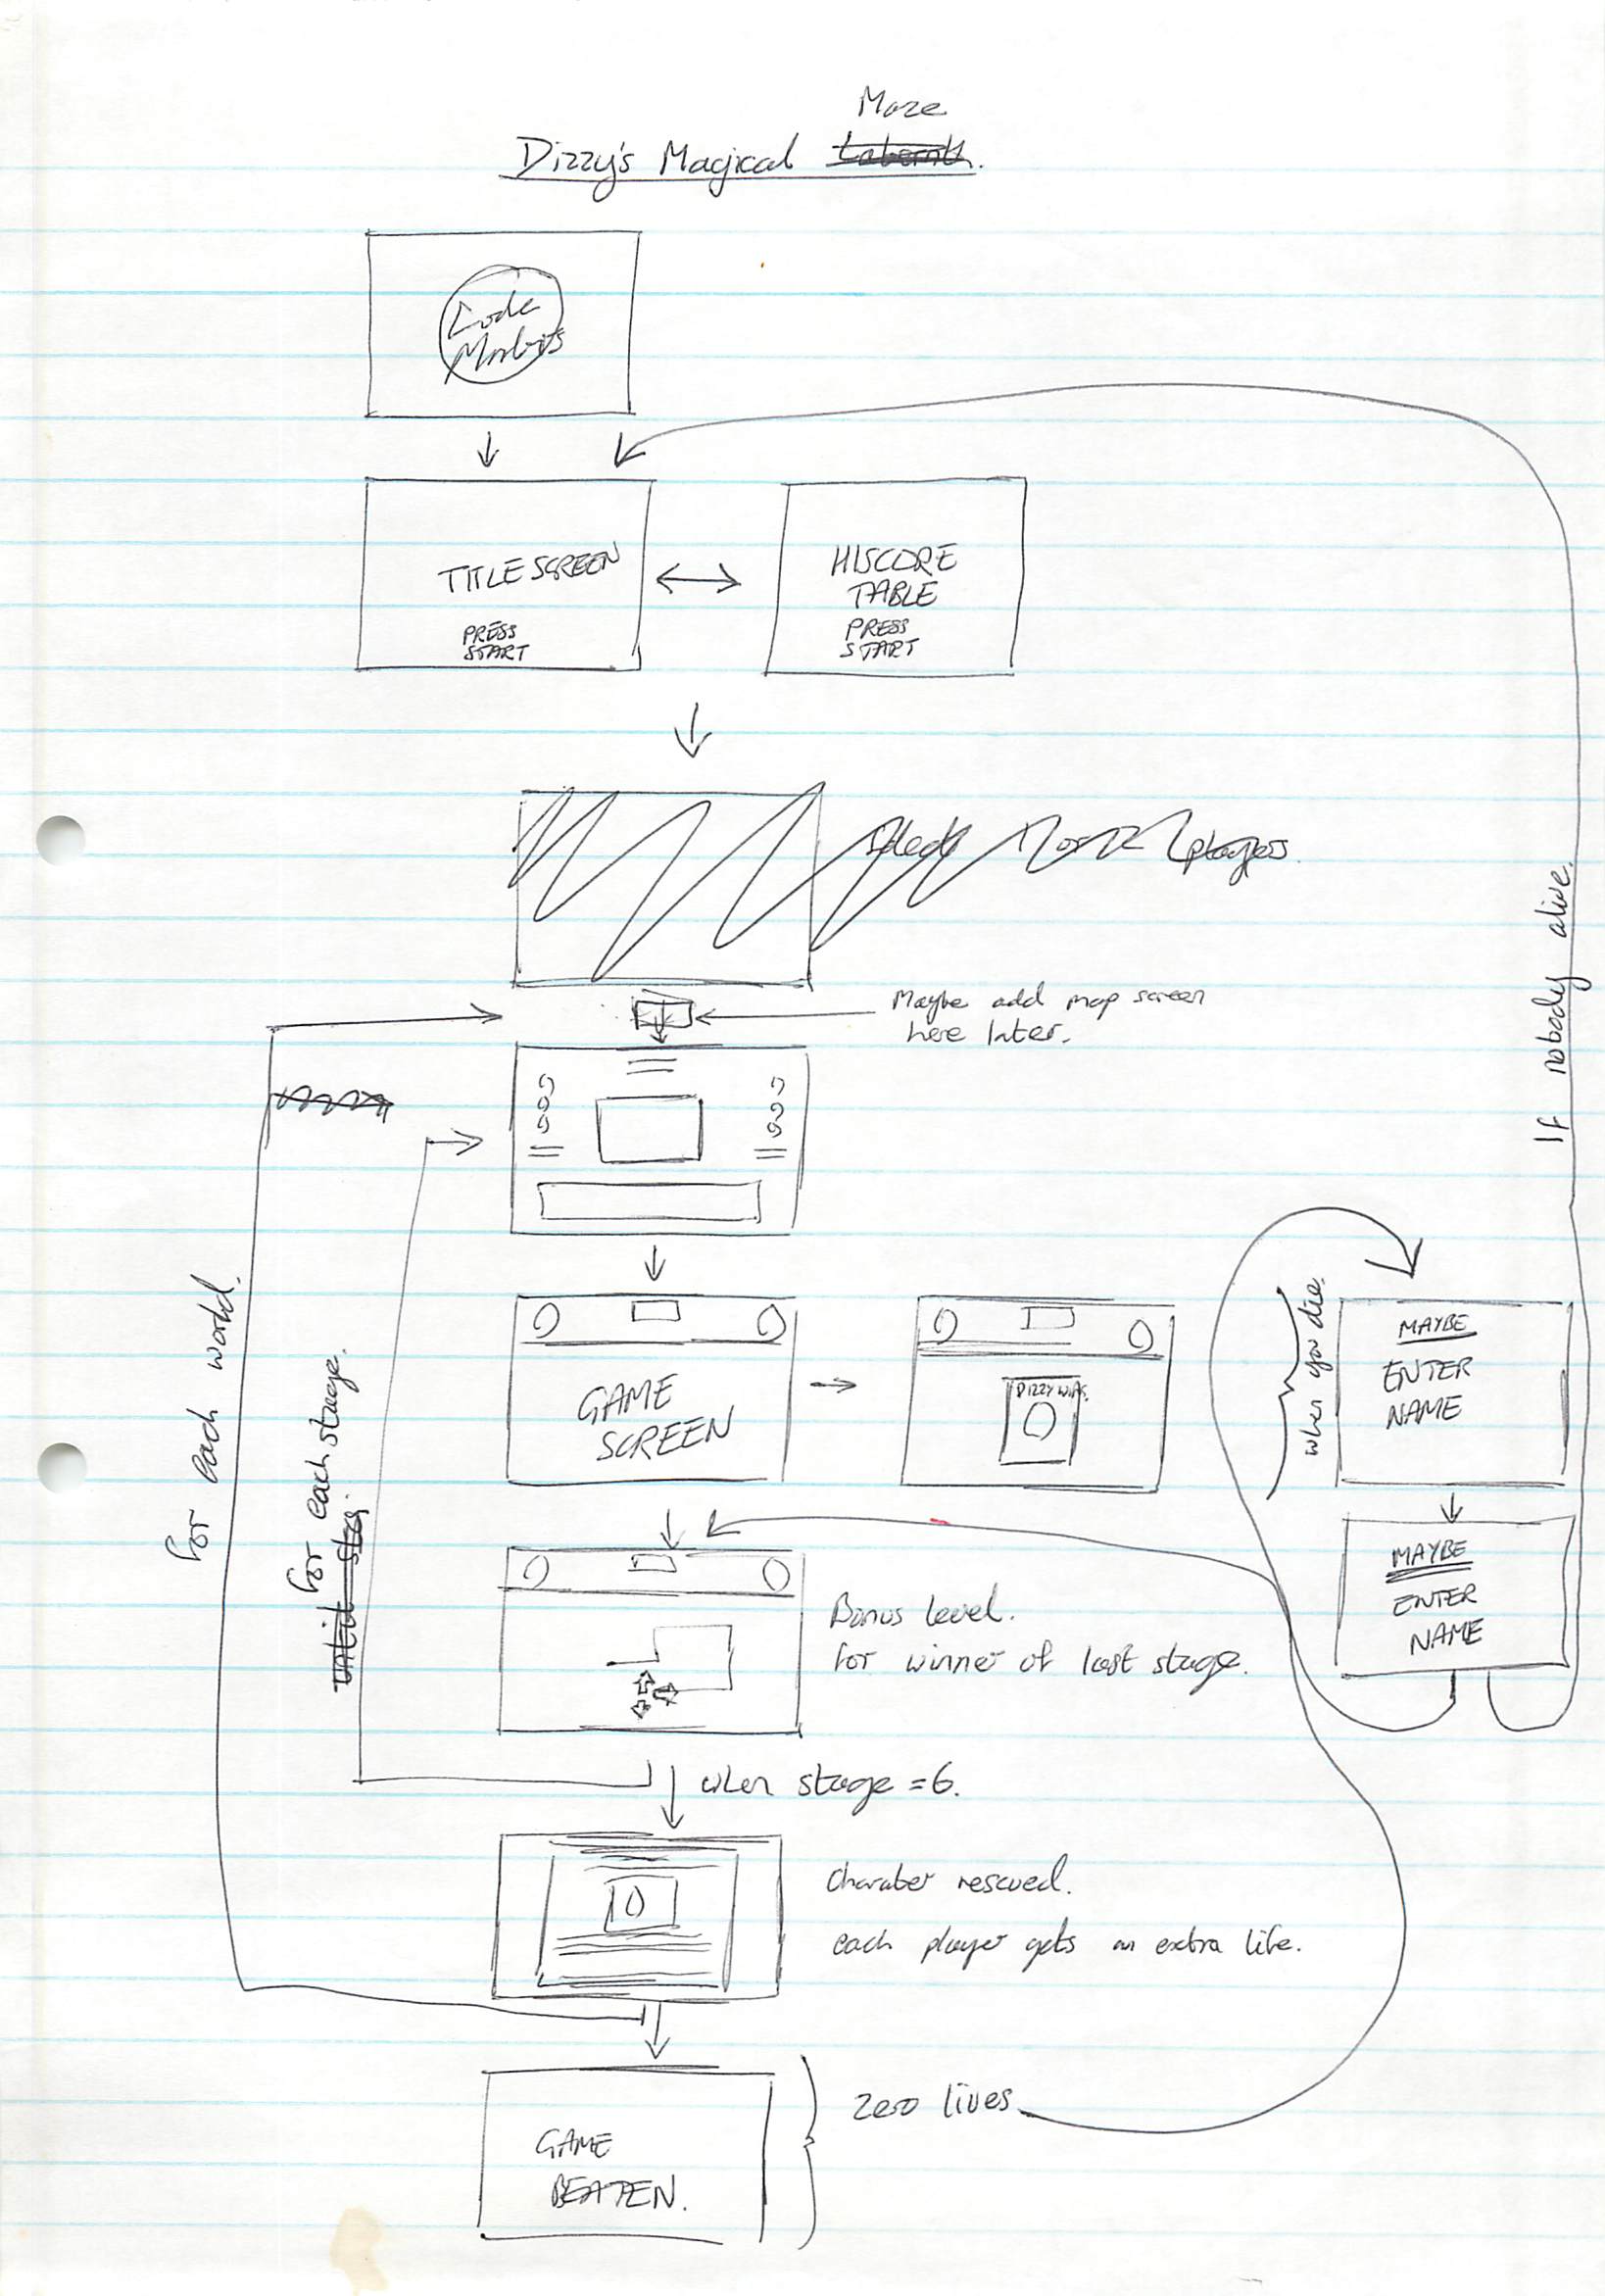 Maze
Dizzy's Magical Labernth.
Code
Masters
TITLE SCREEN
PRESS
START
HISCORE
TABLE
PRESS
START
Select 1 or 2 players.
Maybe add map screen
here later.
If nobody alive.
for each world.
for each stage.
GAME
SCREEN
DIZZY WINS.
when you die.
MAYBE
ENTER
NAME
MAYBE
ENTER
NAME
Bonus level.
for winner of last stage.
when stage = 6.
Character rescued.
each player gets an extra life.
GAME
BEATEN.
Zero lives